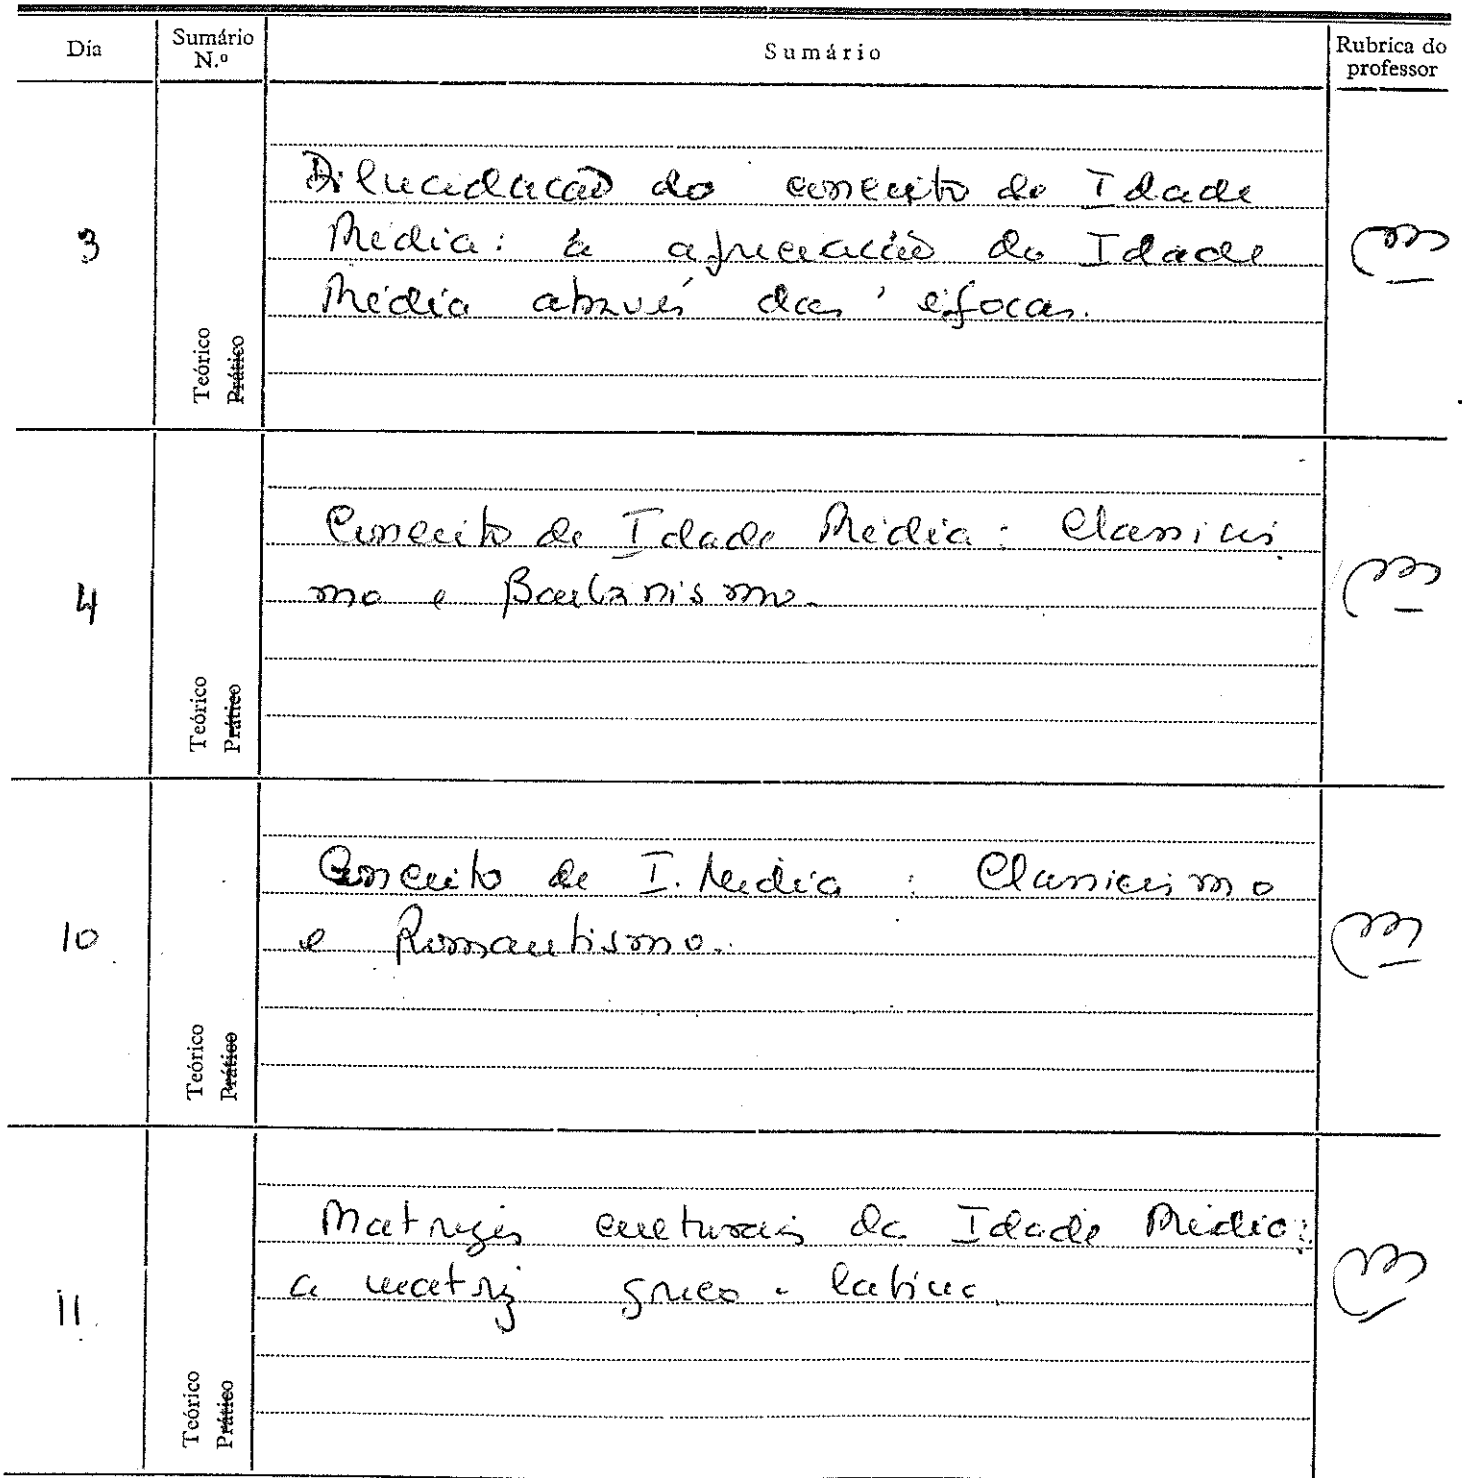 Dia
Sumário N.º
Sumário
Rubrica do professor
3
Teórico
Prático
Dilucidação do conceito de Idade
Média: a apreciação da Idade
Média através das épocas.
4
Teórico
Prático
Conceito de Idade Média: Classicis
mo e Barbarismo.
10
Teórico
Prático
Conceito de I. Média : Classicismo
e Romantismo.
11
Teórico
Prático
Matrizes culturais da Idade Média:
a matriz greco-latina